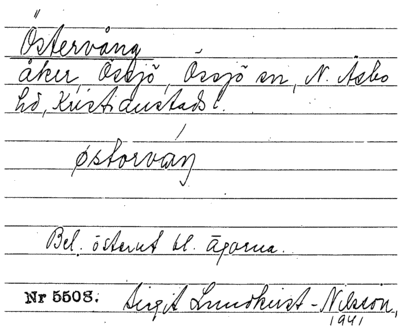 Östervång
åker, Össjö, Össjö sn, N. Åsbo
hd, Kristianstads l.
østorváŋ
Bel. österut bl. ägorna.
Nr 5508. Birgit Lundkvist-Nilsson,
1941